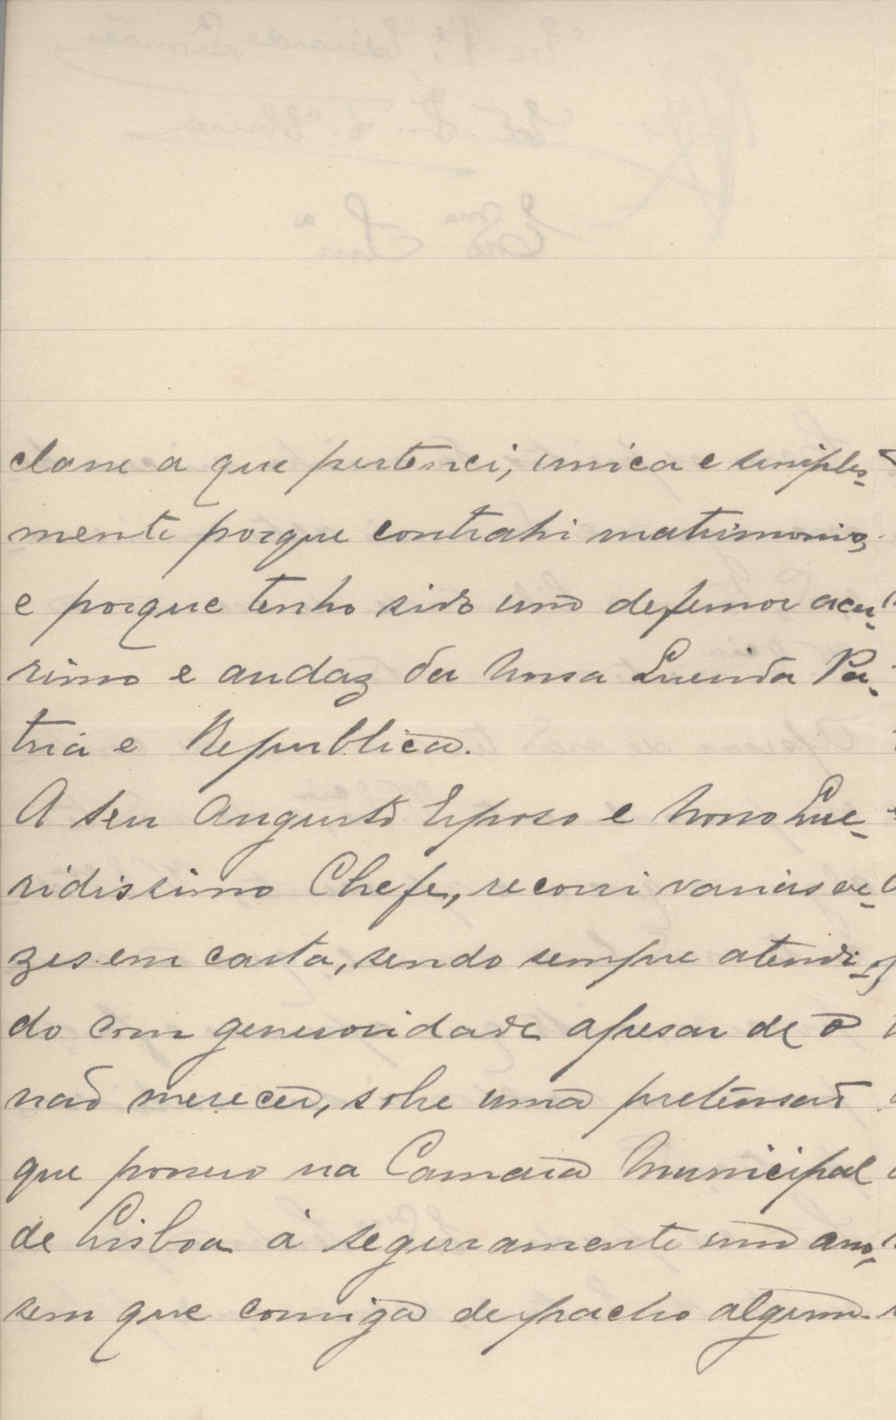 classe a que pertenci, unica e simples-
mente porque contrahi matrimonio,
e porque tenho sido um defensor acer-
rimo e audaz da Nossa Querida Pa-
tria e Republica.
A seu Augusto Esposo e Nosso Que-
ridissimo Chefe, recorri varias ve-
zes em carta, sendo sempre atendi-
do com generosidade apesar de o
não merecer, sobre uma pretensão
que possuo na Camara Municipal
de Lisboa á seguramente um ano,
sem que consiga despacho algum.